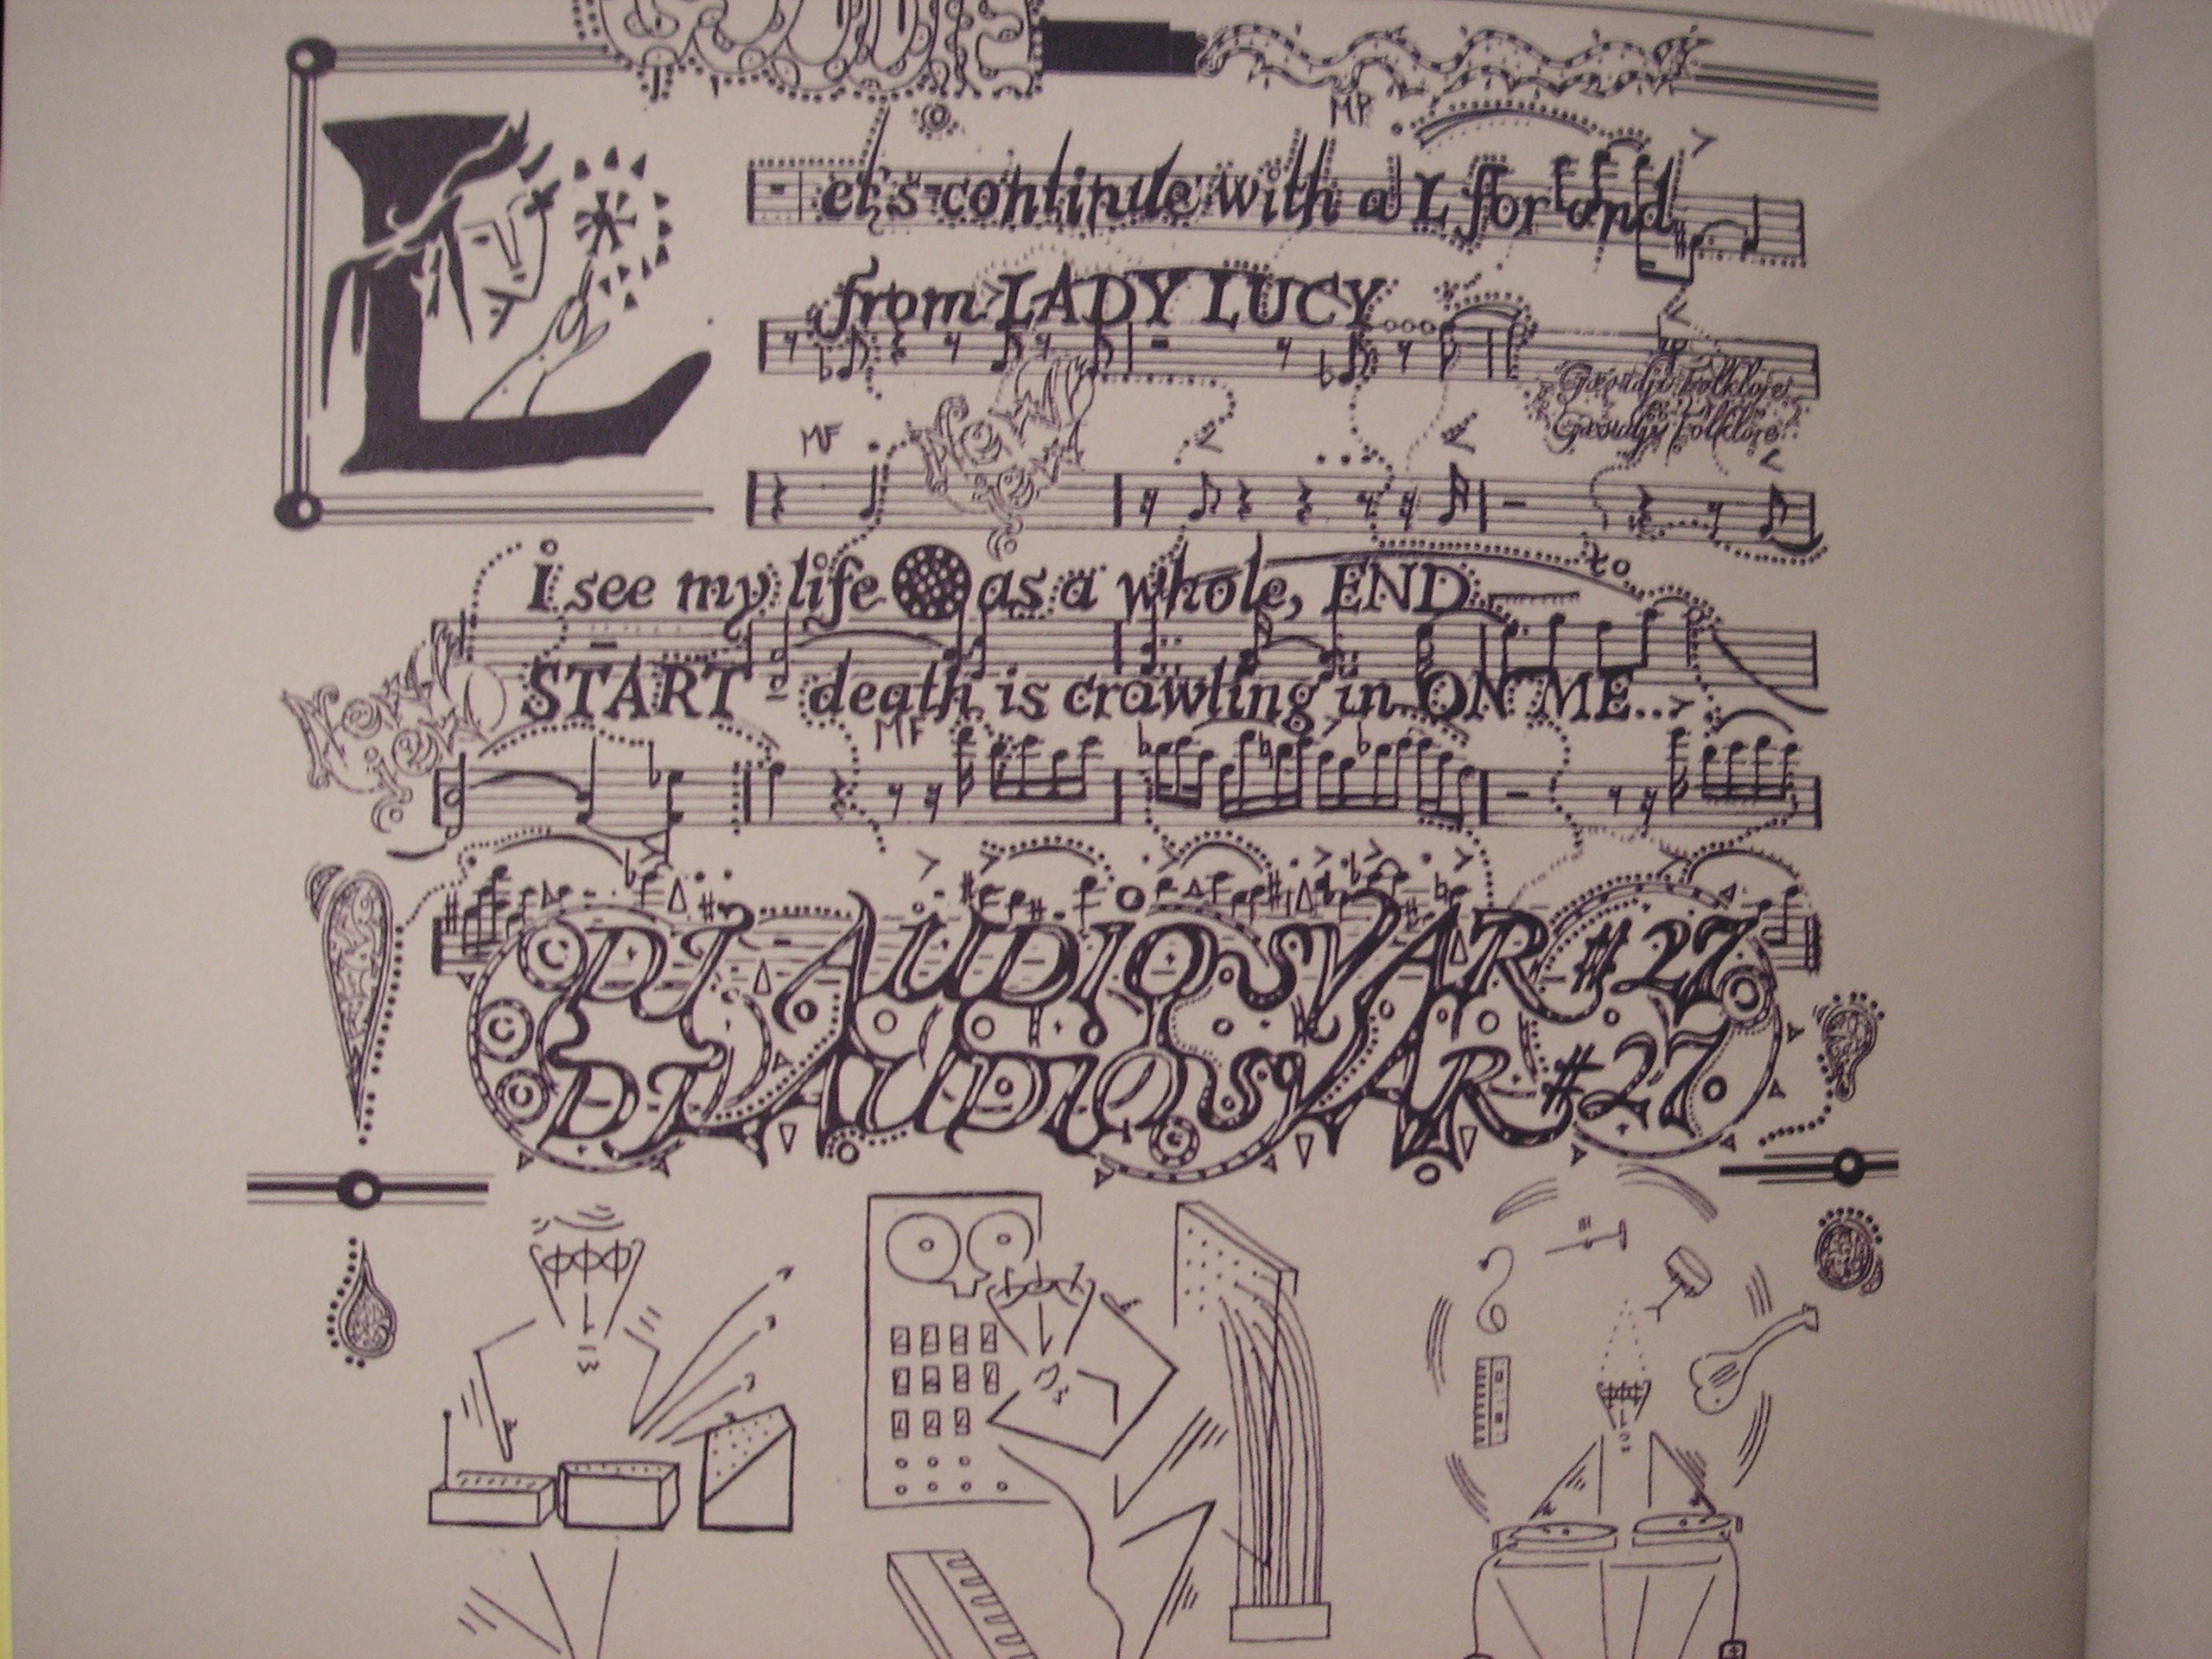 MP
Let's continue with a L for and
from LADY LUCY...
Groudji Folklore
Groudji Folklore
MF
NOW
i see my life as a whole, END to
START - death is crawling in ON ME...
NOW
MF
DJ AUDIOSVAR #27
DJ AUDIOSVAR #27